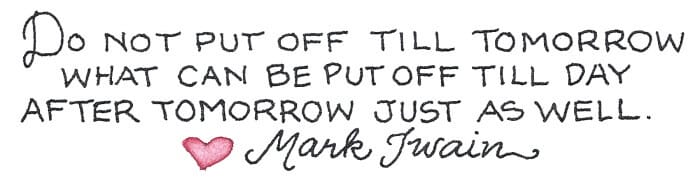 DO NOT PUT OFF TILL TOMORROW
WHAT CAN BE PUT OFF TILL DAY
AFTER TOMORROW JUST AS WELL.
Mark Twain